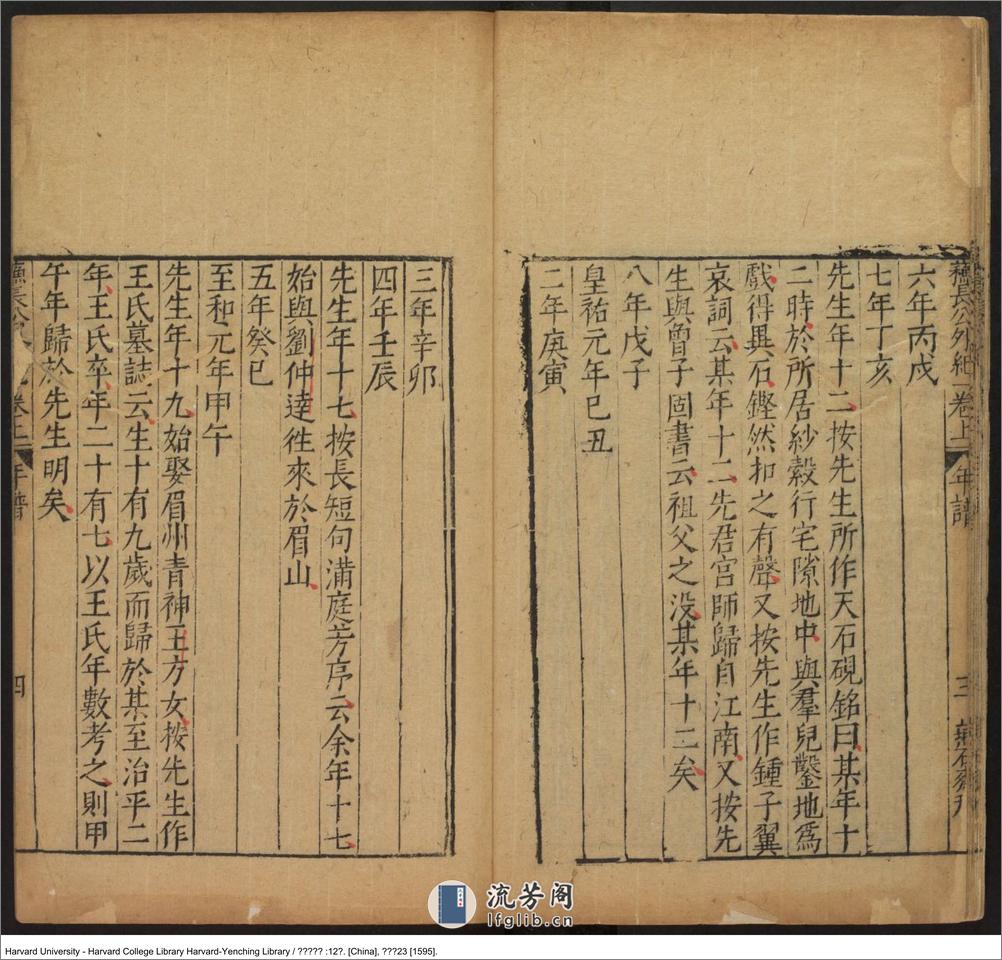 蘇長公外紀 卷上 年譜 三
六年丙戌
七年丁亥
先生年十二按先生所作天石硯銘曰某年十
二時於所居紗縠行宅隙地中與羣兒鑿地爲
戲得異石鏗然扣之有聲又按先生作鍾子翼
哀詞云某年十二先君宮師歸自江南又按先
生與曾子固書云祖父之沒某年十二矣
八年戊子
皇祐元年己丑
二年庚寅
三年辛卯
四年壬辰
先生年十七按長短句滿庭芳序云余年十七
始與劉仲達往來於眉山
五年癸巳
至和元年甲午
先生年十九始娶眉州青神王方女按先生作
王氏墓誌云生十有九歲而歸於某至治平二
年王氏卒年二十有七以王氏年數考之則甲
午年歸於先生明矣
蘇長公 卷上 年譜 四
流芳阁
lfglib.cn
Harvard University - Harvard College Library Harvard-Yenching Library / ????? :12?. [China], ???23 [1595].